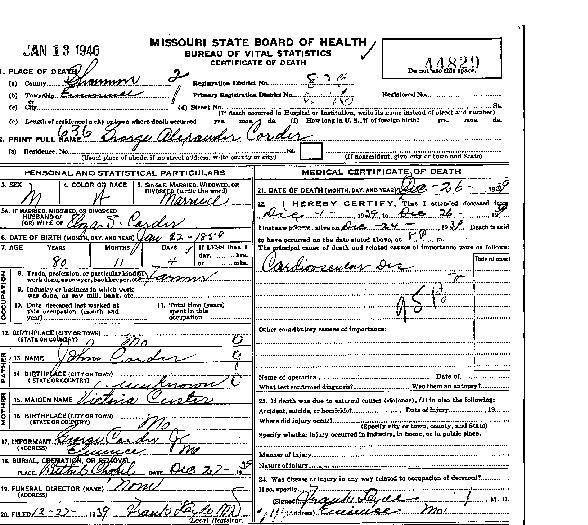 JAN 13 1940
MISSOURI STATE BOARD OF HEALTH
BUREAU OF VITAL STATISTICS
CERTIFICATE OF DEATH
44829
Do not use this space.
1. PLACE OF DEATH
(a) County Shannon
Registration District No.
(b) Township Eminence
Primary Registration District No.
Registered No.
(c) City
(d) Street No.
St.
(If death occurred in Hospital or Institution, write its name instead of street and number)
(e) Length of residence in city or town where death occurred yrs. mos. ds.
(f) How long in U.S., if of foreign birth? yrs. mos. ds.
2. PRINT FULL NAME George Alexander Corder
(a) Residence, No.
St.
(Usual place of abode, if no street address, write county or city)
(If nonresident, give city or town and State)
PERSONAL AND STATISTICAL PARTICULARS
3. SEX M
4. COLOR OR RACE W
5. SINGLE, MARRIED, WIDOWED, OR DIVORCED (write the word) Married
5A. IF MARRIED, WIDOWED, OR DIVORCED
HUSBAND OF
(OR) WIFE OF Corder
6. DATE OF BIRTH (MONTH, DAY, AND YEAR) Jan 22-1859
7. AGE YEARS MONTHS DAYS If LESS than 1
80 11 4
day, hrs.
or min.
OCCUPATION
8. Trade, profession, or particular kind of work done, sawyer, bookkeeper, etc. Farmer
9. Industry or business in which work was done, as saw mill, bank, etc.
10. Date deceased last worked at this occupation (month and year)
11. Total time (years) spent in this occupation
12. BIRTHPLACE (CITY OR TOWN)
(STATE OR COUNTRY) Mo
FATHER
13. NAME John Corder
14. BIRTHPLACE (CITY OR TOWN)
(STATE OR COUNTRY) Unknown
MOTHER
15. MAIDEN NAME Victoria Custer
16. BIRTHPLACE (CITY OR TOWN)
(STATE OR COUNTRY) Mo
17. INFORMANT George Corder Jr
(ADDRESS) Eminence Mo
18. BURIAL, CREMATION, OR REMOVAL
PLACE Chapel DATE Dec 27- 39
19. FUNERAL DIRECTOR (NAME) None
(ADDRESS)
20. FILED 12-27- 39 Frank Hyde MD
Local Registrar.
MEDICAL CERTIFICATE OF DEATH
21. DATE OF DEATH (MONTH, DAY, AND YEAR) Dec-26- 1939
22. I HEREBY CERTIFY, That I attended deceased from
Dec-4- 1939 to Dec 26- 1939
I last saw h alive on Dec-24- 1939 Death is said
to have occurred on the date stated above, at
The principal cause of death and related causes of importance were as follows:
Date of onset
Cardiovascular Dis
95B
Other contributory causes of importance:
Name of operation Date of
What test confirmed diagnosis? Was there an autopsy?
23. If death was due to external causes (violence), fill in also the following:
Accident, suicide, or homicide? Date of injury 19
Where did injury occur?
(Specify city or town, county, and State)
Specify whether injury occurred in industry, in home, or in public place.
Manner of injury
Nature of injury
24. Was disease or injury in any way related to occupation of deceased?
If so, specify
(Signed) Frank Hyde M.D.
(Address) Eminence Mo.